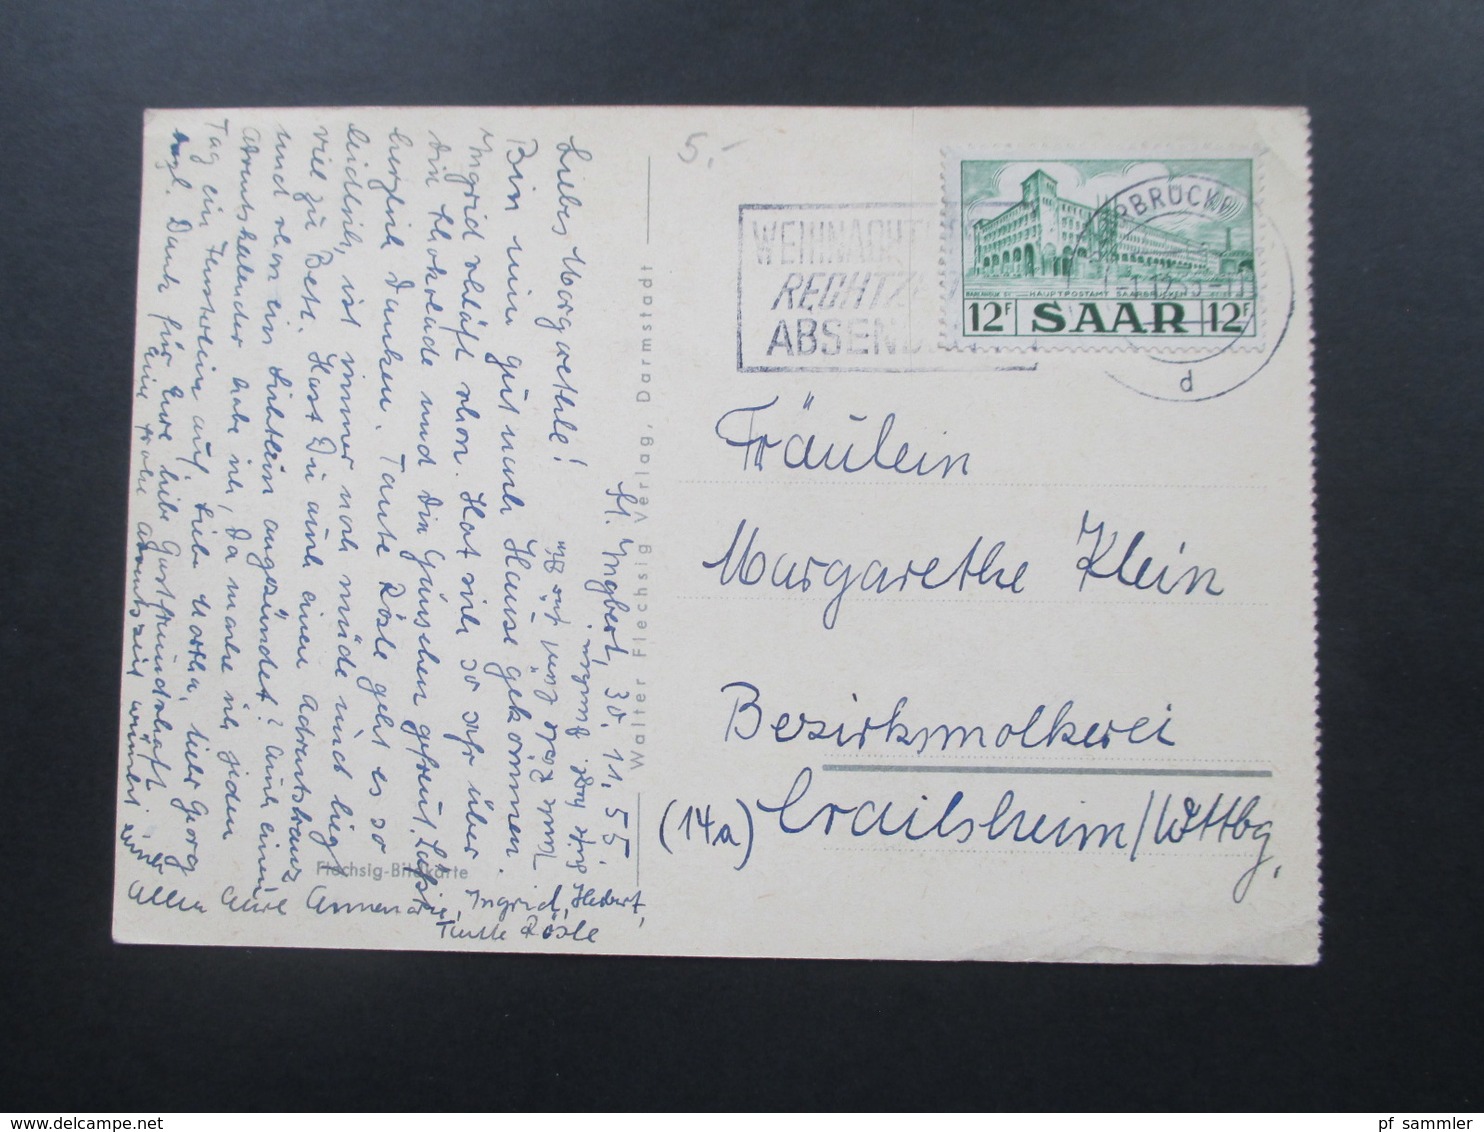 5.-
WEIHNACHT
RECHTZ
ABSEN
RBRÜCK
HAUPTPOSTAMT SAARBRÜCKEN
12F SAAR 12F
d
Fräulein
Margarethe Klein
Bezirksmolkerei
(14a) Crailsheim/Wttbg,
Walter Flechsig Verlag, Darmstadt
Flechsig-Bildkarte
St. Ingbert, 30.11.55.
Liebes Margarethle!
Bin nun gut nach Hause gekommen.
Ingrid schläft schon. Hat sich so sehr über
die Schokolade und die Grüsschen gefreut. Lässt
herzlich danken. Tante Rösle geht es so
leidlich, ist immer noch müde und liegt
viel zu Bett. Hast Du auch einen Adventskranz
und schon ein Lichtlein angezündet? Auch einen
Adventskalender habe ich, da mache ich jeden
Tag ein Fensterlein auf. Liebe Martha, lieber Georg
vgl. Dank für Eure liebe Gastfreundschaft.
Eine frohe Adventszeit wünscht Euch
allen Eure Annemarie, Ingrid, Herbert,
Tante Rösle